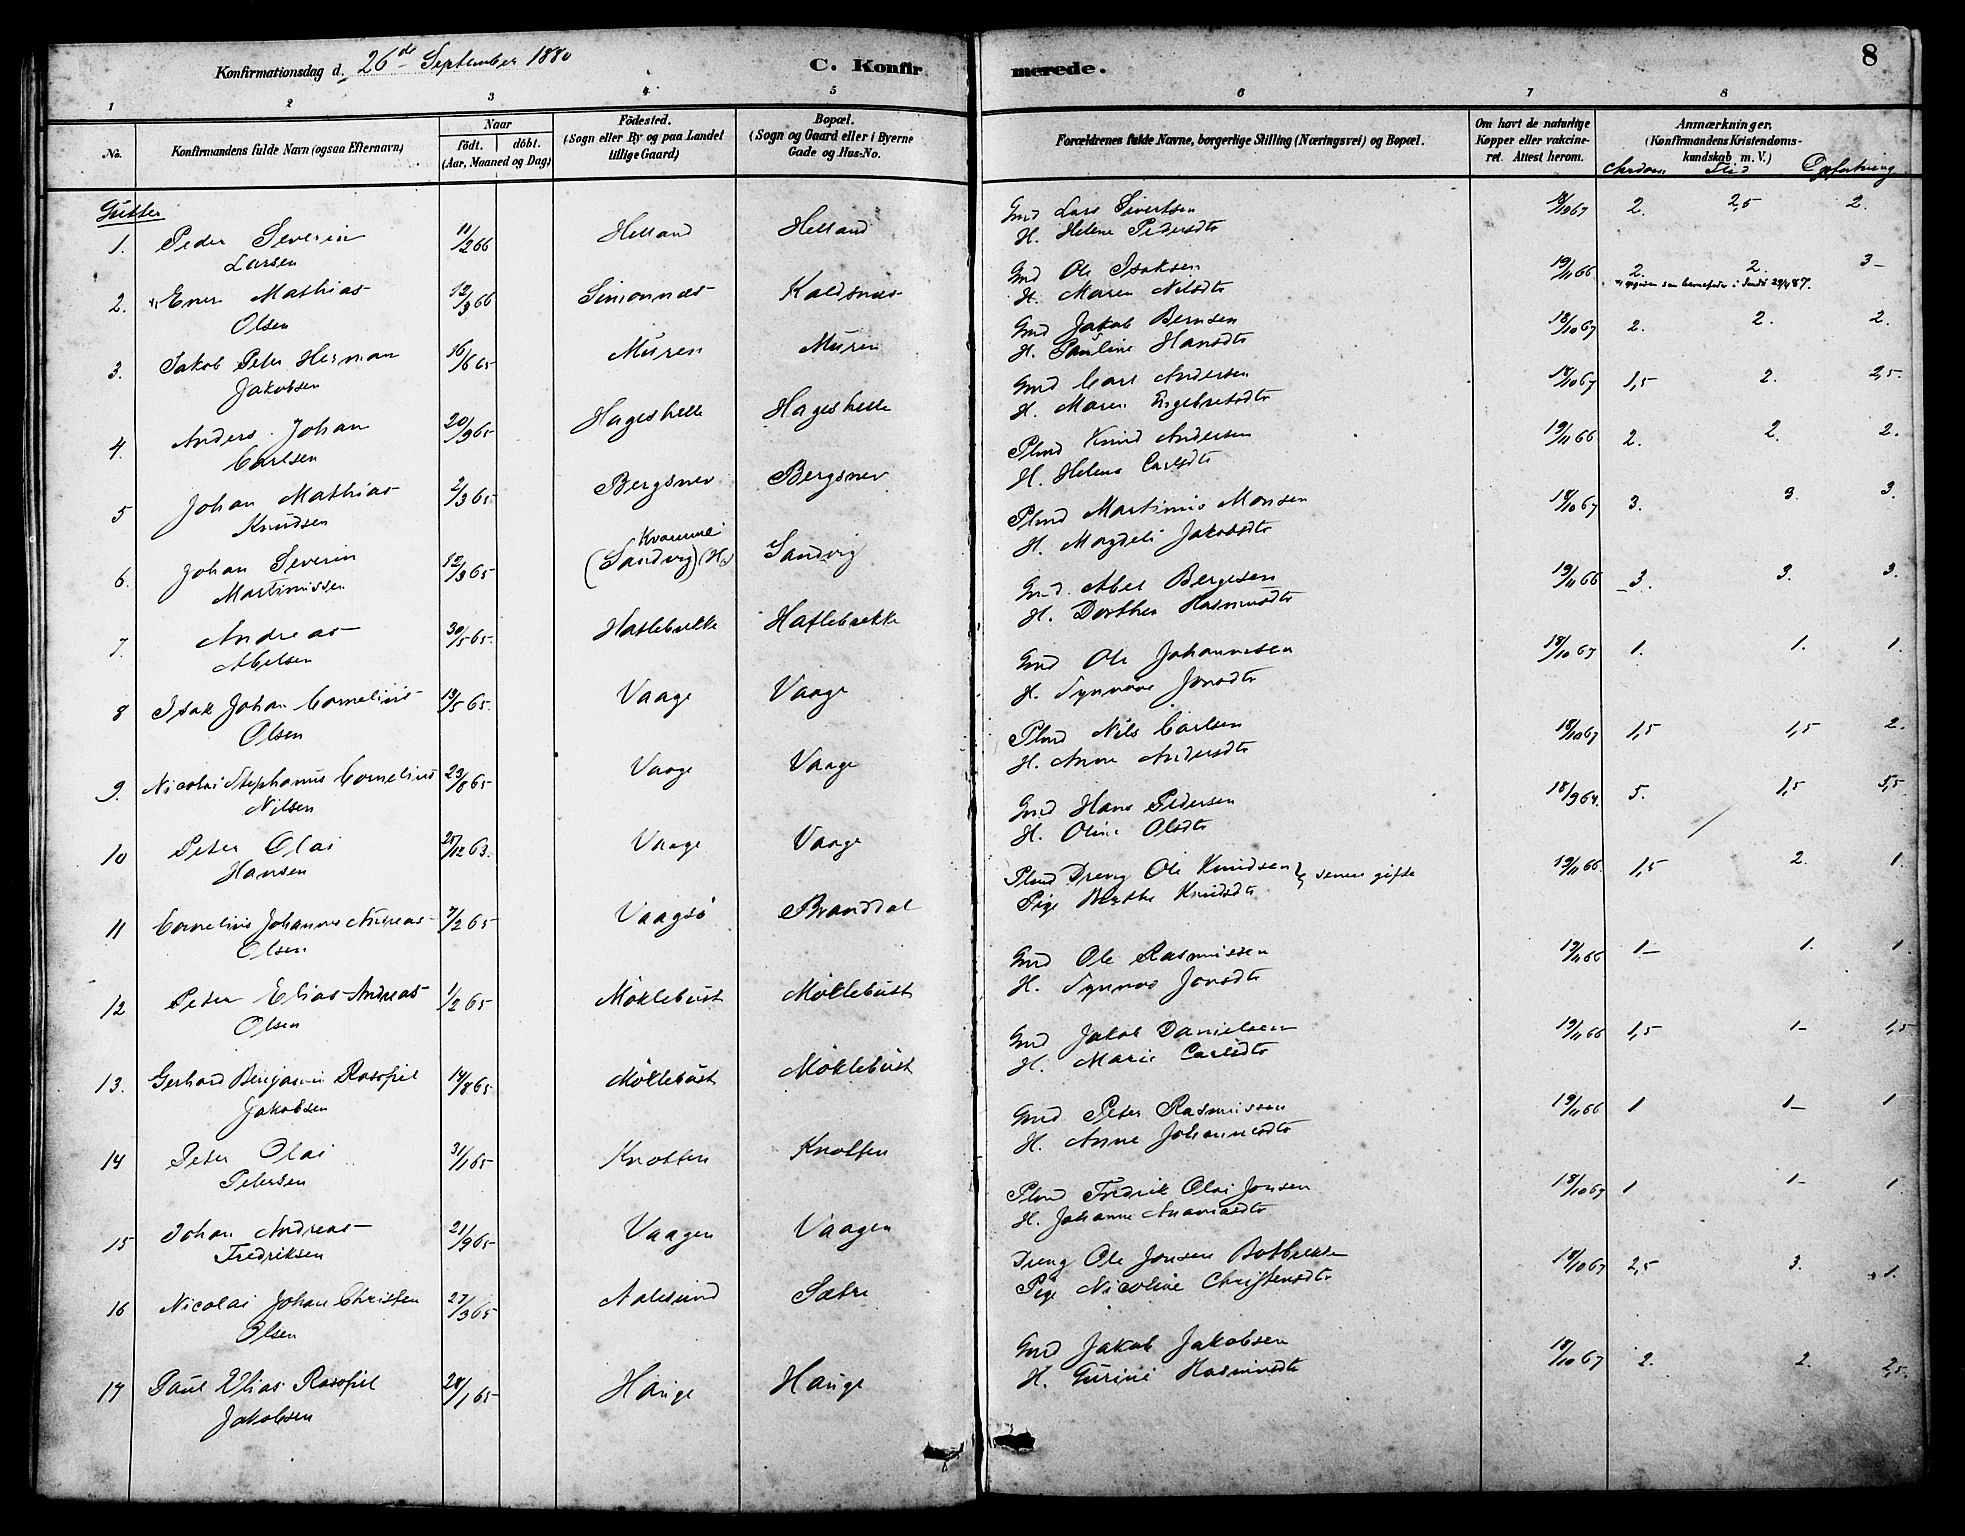 Konfirmationsdag d. 26de September 1880
C. Konfir
merede.
8
1 2 3 4 5 6 7 8
No.
Konfirmandens fulde Navn (ogsaa Efternavn)
Naar
födt. döbt.
(Aar, Maaned og Dag)
Födested.
(Sogn eller By og paa Landet
tillige Gaard)
Bopæl.
(Sogn og Gaard eller i Byerne
Gade og Hus-No.
Forældrenes fulde Navne, borgerlige Stilling (Næringsvei) og Bopæl.
Om havt de naturlige
Kopper eller vakcine-
ret. Attest herom.
Anmærkninger,
(Konfirmandens Kristendoms-
kundskab m. V.)
Flid
Gutter
1. Peder Severin 11/2 66 Helland Helland Gmd Lars Sivertsen 2. 2,5 2.
Larsen H. Helene Pedersdtr
2. Ener Mathias 12/3 66 Simonnes Kaldsnes Gmd Ole Isaksen 19/11 66 2. 2. 3-
Olsen H. Maren Nilsdtr
3. Jakob Peter Herman 16/6 65 Muren Muren Gmd Jakob Bernsen 18/10 67 2. 2. 2.
Jakobsen H. Pauline Hansdtr
4. Anders Johan 20/9 65 Hageshelle Hageshelle Gmd Carl Andersen 18/10 67 1,5 2. 2,5.
Carlsen H. Maren Engebretsdtr
5 Johan Mathias 2/3 65 Bergsnev Bergsnev Plmd Knud Andersen 19/11 66 2. 2. 2.
Knudsen H. Helene Carlsdtr
6. Johan Severin 12/3 65 (Sandvig) Sandvig Plmd Martinus Monsen 18/10 67 3. 3. 3.
Martinussen H. Magdeli Jakobsdtr
7. Andreas 30/5 65 Haflebrekke Haflebrekke Gmd. Abel Bergesen 19/11 66 3. 3. 3.
Abelsen H. Dorthea Rasmusdtr
8 Isak Johan Cornelius 13/5 65. Vaage Vaage Gmd Ole Johannesen 18/10 67 1. 1. 1.
Olsen H. Synnøve Jonsdtr
9. Nicolai Stephanus Cornelius 23/8 65 Vaage Vaage Plmd Nils Carlsen 18/10 67 1,5 1,5 2.
Nilsen H. Anne Andersdtr
10 Peter Olai Vaage Vaage Gmd Hans Pedersen 18/9 64. 5. 1,5 5,5
Hansen H. Oline Olsdtr
11 Cornelius Johannes Andreas 7/2 65 Vaagsö Branddal Plmd Dreng Ole Knudsen } senere gifte 19/11 66. 1,5 2. 1.
Olsen Pige Berthe Knudsdtr
12 Peter Elias Andreas 1/2 65 Möklebust Möklebust Gmd Ole Rasmussen 19/11 66 1- 1. 1
Olsen H. Synnøve Jonsdtr
13. Gerhard Benjamin Rasofiel 14/8 65 Möklebust Möklebust Gmd Jakob Danielsen 19/11 66 1,5 1- 1,5
Jakobsen H. Marie Carlsdtr
14 Peter Olai 31/1 65 Knotten Knotten Gmd Peter Rasmussen 19/11 66 1 1- 1
Petersen H. Anne Johannesdtr
15 Johan Andreas 21/9 65 Vaagen Vaagen Plmd Fredrik Olai Jonsen 18/10 67 1 1- 1
Fredriksen H. Johanne Ananiasdtr
16 Nicolai Johan Christen 27/3 65 Aalesund Sætre Dreng Ole Jonsen 18/10 67 2,5 3. 1.
Olsen Pige Nicoline Christensdtr
17 Paul Elias Rasofiel 28/1 65 Hauge Hauge Gmd Jakob Jakobsen 18/10 67 2. 2. 2,5.
Jakobsen H. Gurine Rasmusdtr